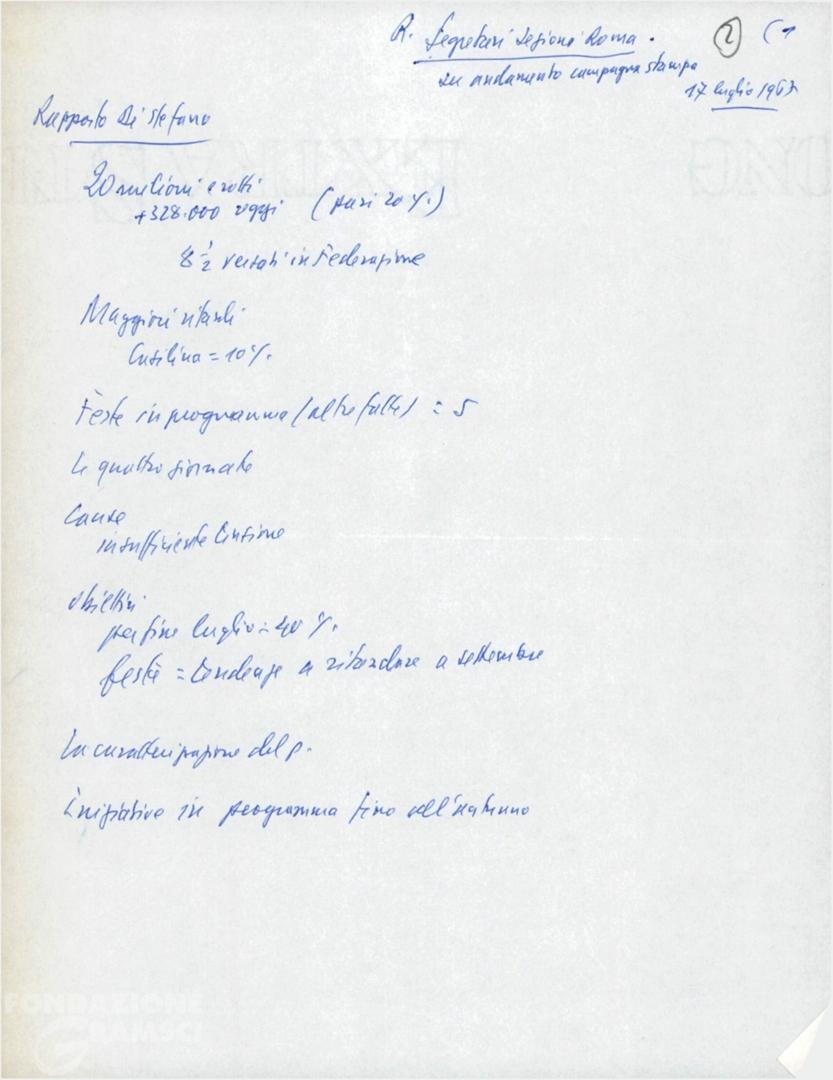 R. Segretari Sezioni Roma. 2 (1
su andamento campagna stampa
17 luglio 1963
Rapporto Di Stefano
20 milioni e rotti
+328.000 oggi (pari 20%)
8 1/2 versati in Federazione
Maggiori ritardi
Casilina = 10%.
Feste in programma (altre fatte) = 5
Le quattro giornate
Cause
insufficiente tensione
obiettivi
per fine luglio = 40%.
feste = tendenze a ritardare a settembre
La caratterizzazione del p.
Iniziative in programma fino all'autunno
FONDAZIONE
GRAMSCI